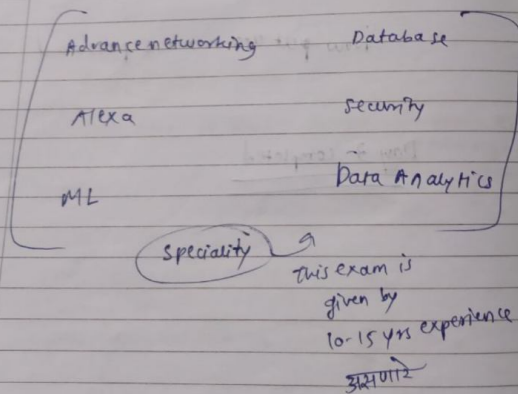 Advance networking Database
Alexa Security
ML Data Analytics
Speciality
This exam is
given by
10-15 yrs experience
असणारे